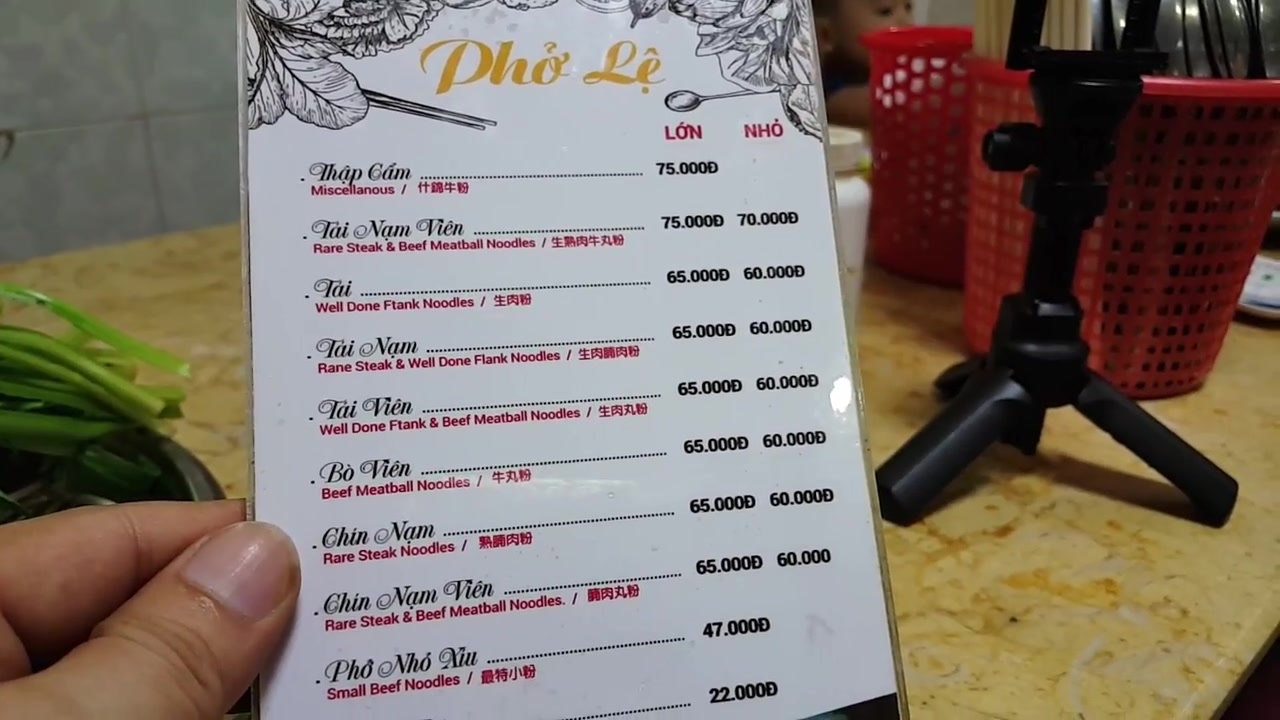 Phở Lệ
LỚN NHỎ
. Thập Cẩm ........ 75.000Đ
Miscellanous / 什錦牛粉
. Tái Nạm Viên ........ 75.000Đ 70.000Đ
Rare Steak & Beef Meatball Noodles / 生熟肉牛丸粉
. Tái ........ 65.000Đ 60.000Đ
Well Done Ftank Noodles / 生肉粉
. Tái Nạm ........ 65.000Đ 60.000Đ
Rane Steak & Well Done Flank Noodles / 生肉腩肉粉
. Tái Viên ........ 65.000Đ 60.000Đ
Well Done Ftank & Beef Meatball Noodles / 生肉丸粉
. Bò Viên ........ 65.000Đ 60.000Đ
Beef Meatball Noodles / 牛丸粉
. Chín Nạm ........ 65.000Đ 60.000Đ
Rare Steak Noodles / 熟腩肉粉
. Chín Nạm Viên ........ 65.000Đ 60.000
Rare Steak & Beef Meatball Noodles. / 腩肉丸粉
. Phở Nhỏ Xíu ........ 47.000Đ
Small Beef Noodles / 最特小粉
........ 22.000Đ